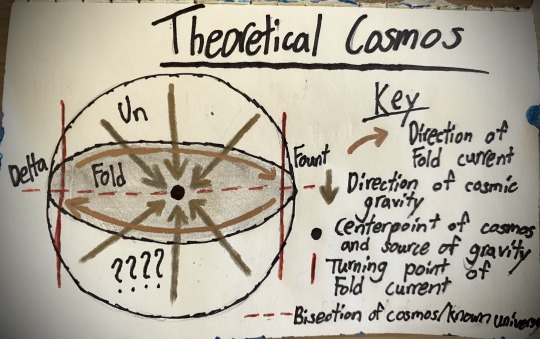 Theoretical Cosmos
Un
Delta
Fold
Fount
????
Key
Direction of
Fold current
Direction of cosmic
gravity
Centerpoint of cosmos
and source of gravity
Turning point of
Fold current
Bisection of cosmos/known universe